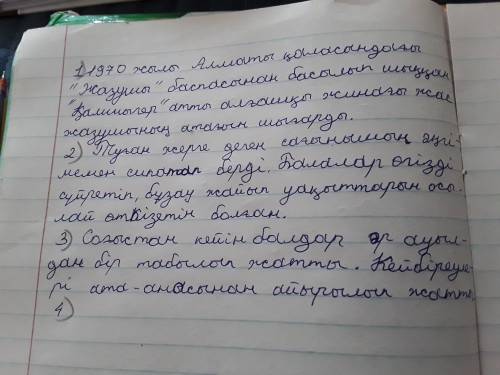 1) 1970 жылы Алматы қаласандағы
"Жазушы" баспасынан басылып шыққан
"Қамшыгер" атты алғашқы жинағы жас
жазушының атағын шығарды.
2) Туған жерге деген сағынышын әңгі-
мемен сипаттап берді. Балалар өгізді
сүйретіп, бұзау жайып уақыттарын осы-
лай өткізетін болған.
3) Соғыстан кейін балдар әр ауыл-
дан бір табылып жатты. Кейбіреуле-
рі ата-анасынан айырылып жатты
4)